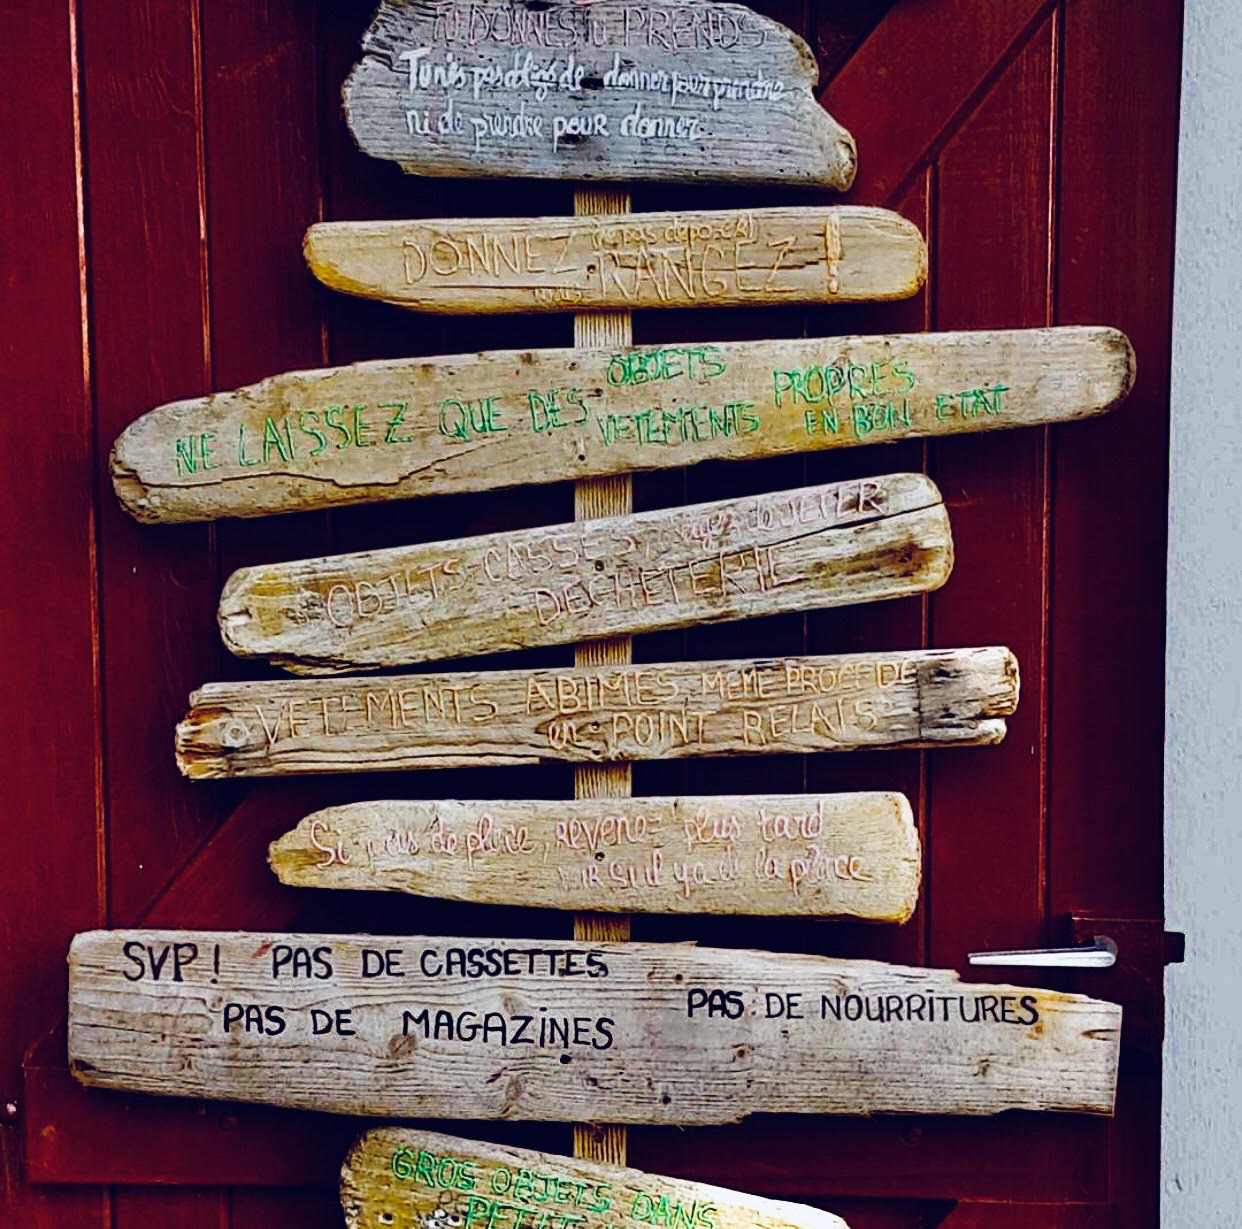 TU DONNES TU PRENDS
Tu n'es pas obligé de donner pour prendre
ni de prendre pour donner
DONNEZ (ne pas déposer)
mais RANGEZ !
NE LAISSEZ QUE DES OBJETS PROPRES
VETEMENTS EN BON ETAT
OBJETS CASSES, JETER
DECHETERIE
VETEMENTS ABIMES MEME PROCEDE
en POINT RELAIS
Si pas de place, revenez plus tard
voir s'il y a de la place
SVP! PAS DE CASSETTES
PAS DE MAGAZINES PAS DE NOURRITURES
GROS OBJETS DANS
PETIT